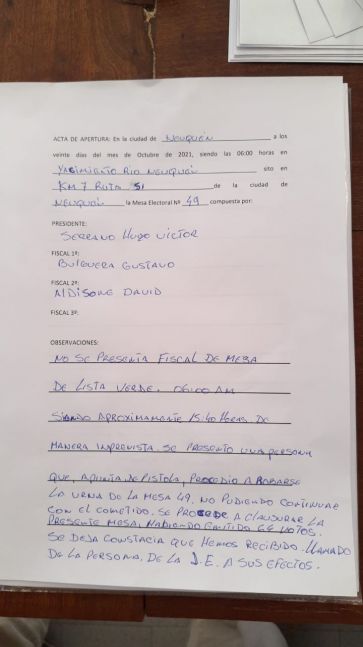 ACTA DE APERTURA: En la ciudad de NEUQUÉN a los
veinte días del mes de Octubre de 2021, siendo las 06:00 horas en
YACIMIENTO RIO NEUQUEN sito en
KM 7 RUTA 51 de la ciudad de
NEUQUEN la Mesa Electoral Nº 49 compuesta por:
PRESIDENTE:
SERRANO HUGO VICTOR
FISCAL 1º:
BULGUERA GUSTAVO
FISCAL 2º:
ALDISONE DAVID
FISCAL 3º:
OBSERVACIONES:
NO SE PRESENTA FISCAL DE MESA
DE LISTA VERDE. 06:00 AM
SIENDO APROXIMAMENTE 15:40 HORAS DE
MANERA IMPREVISTA, SE PRESENTO UNA PERSONA
QUE, APUNTA DE PISTOLA, PROCEDIO A ROBARSE
LA URNA DE LA MESA 49. NO PUDIENDO CONTINUAR
CON EL COMETIDO. SE PROCEDE A CLAUSURAR LA
PRESENTE MESA, HABIENDO EMITIDO 64 VOTOS.
SE DEJA CONSTACIA QUE HEMOS RECIBIDO. LLAMADO
DE LA PERSONA. DE LA J.E. A SUS EFECTOS.